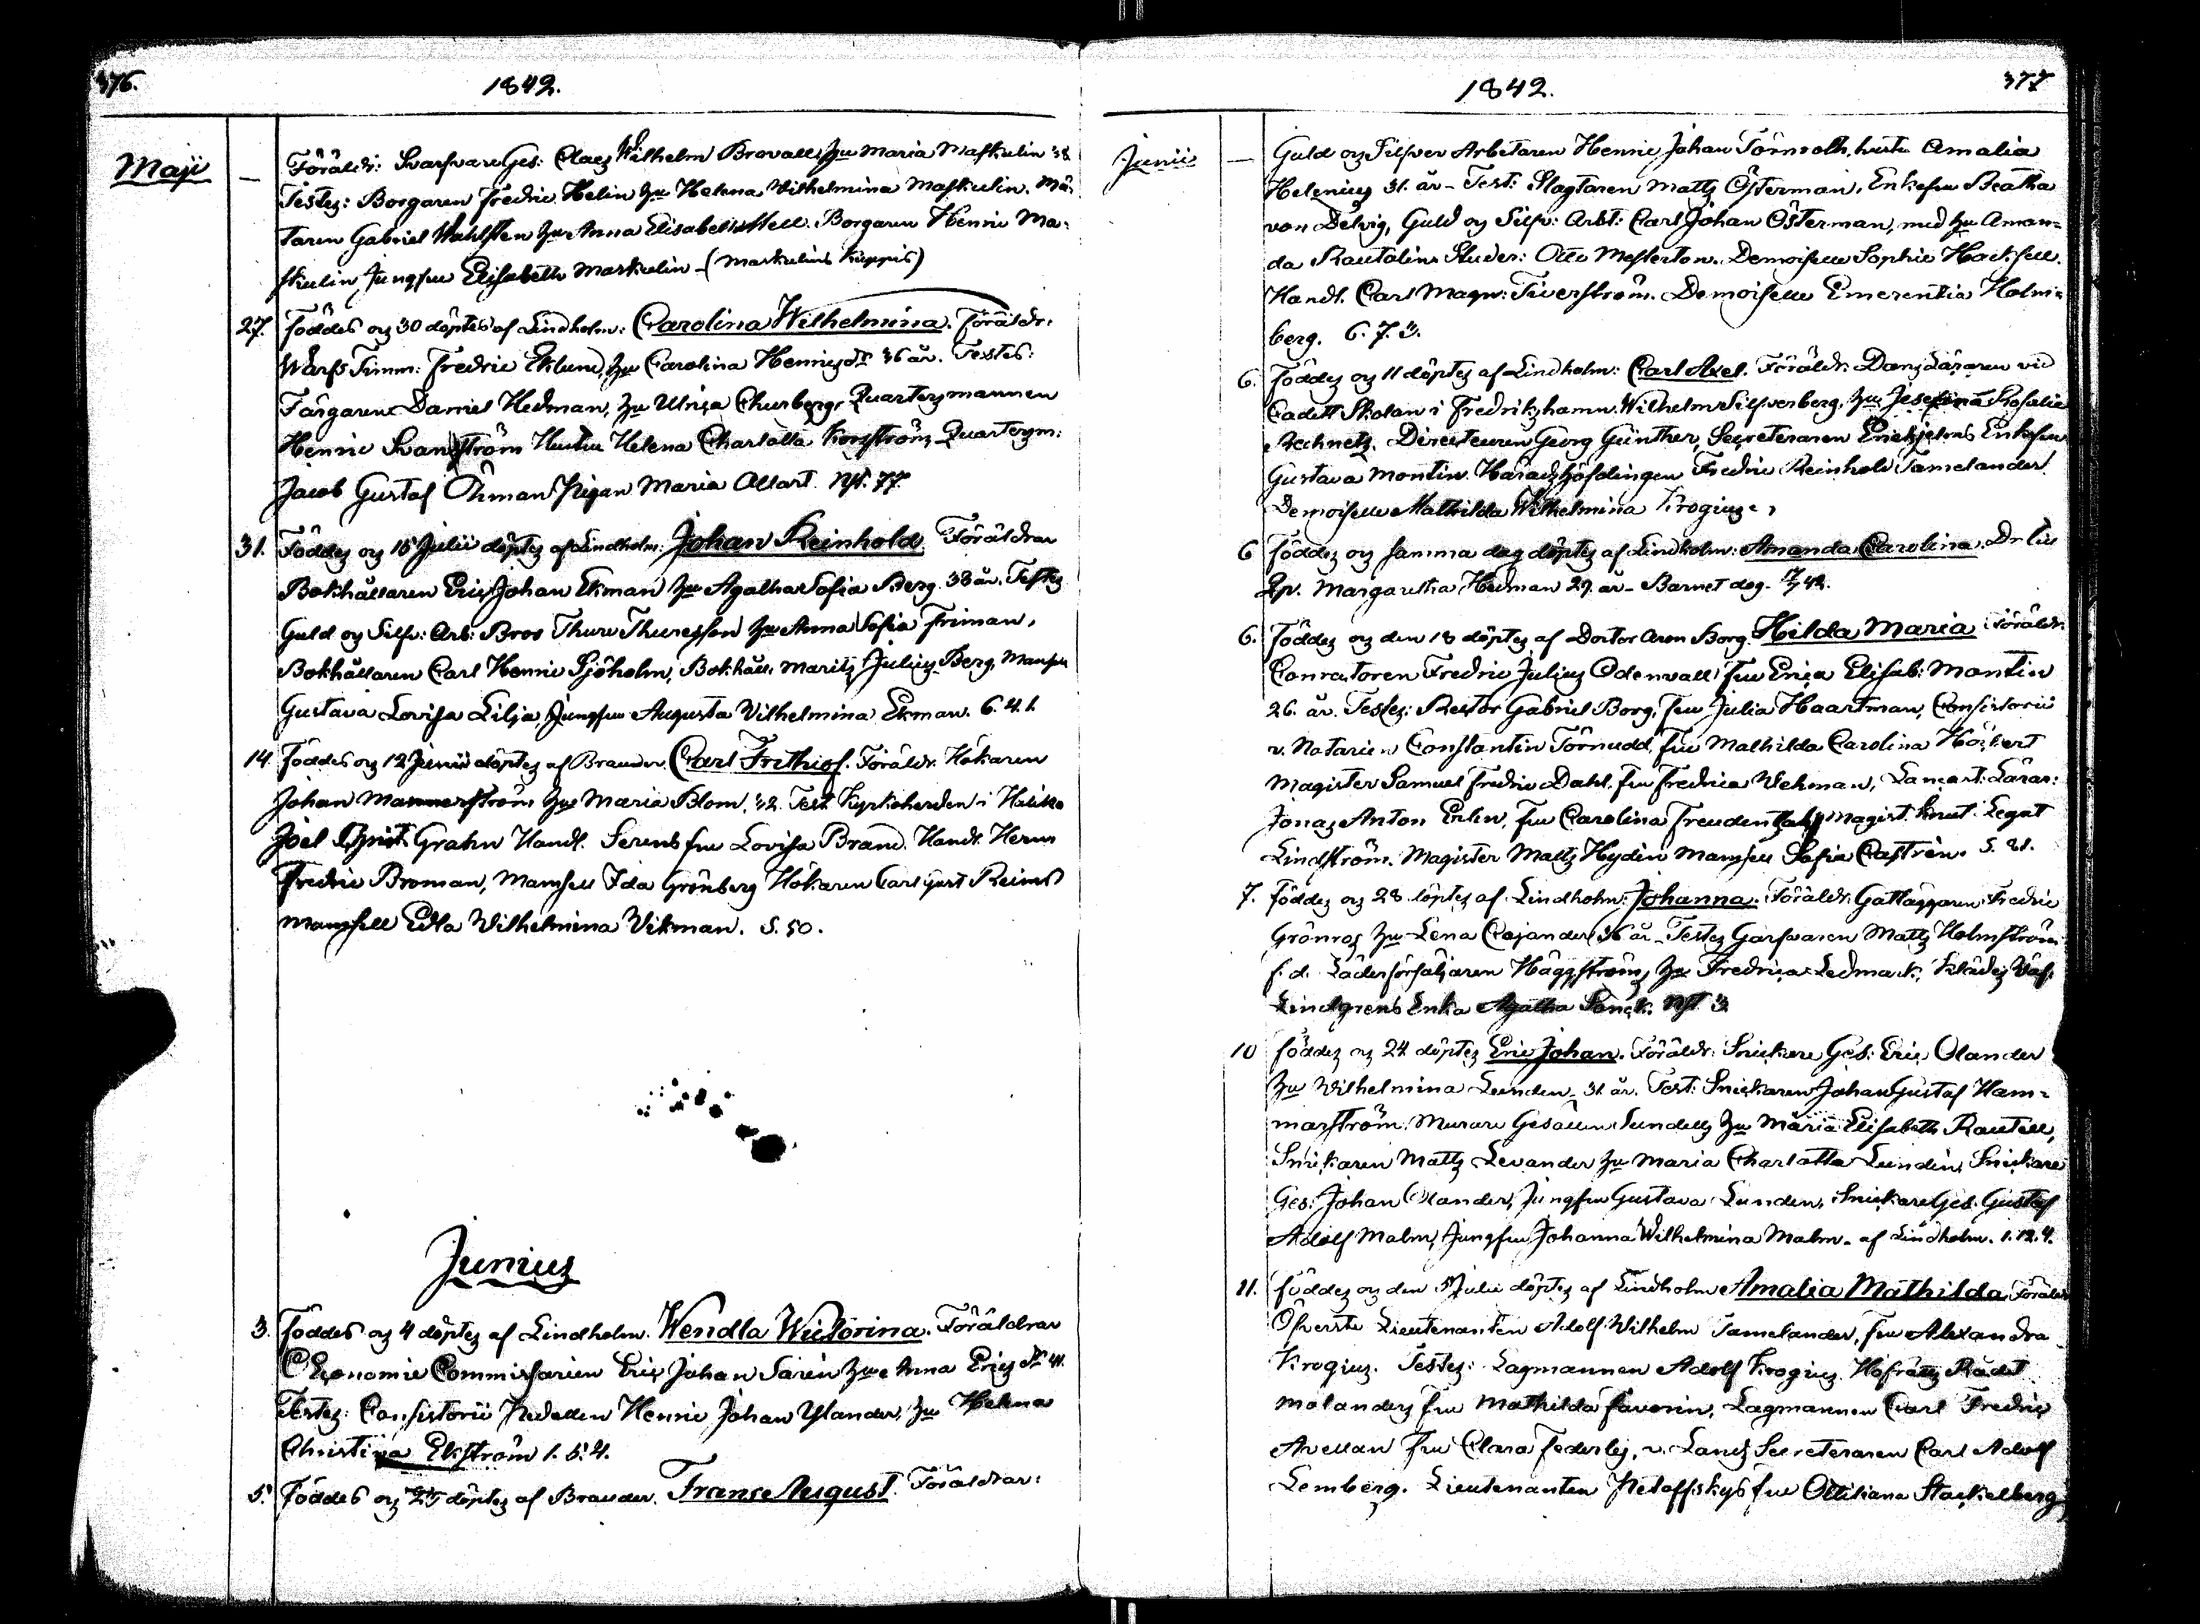 376.
1842.
Maji
— Föräldr: Svarfvare Ges: Claes Wilhelm Brovall, Hu Maria Maskulin 38
Testes: Borgaren Fredric Helin Hu Helena Wilhelmina Maskulin. Må-
laren Gabriel Wahlsten Hu Anna Elisabeth Hell. Borgaren Henric Ma-
skulin Jungfru Elisabeth Maskulin - (Maskulins Kuppis)
27. Föddes og 30 döptes af Lindholm: Carolina Wilhelmina. Föräldr:
Warfs Timm: Fredric Eklund, Hu Carolina Henrics dr 36 år. Testes:
Färgaren Daniel Hedman, Hu Ulrica Churberg, Quartersmannen
Henric Svanström Hustru Helena Charlotta Korsström, Quartersm:
Jacob Gustaf Öhman Pigan Maria Allart. Nst. 77.
31. Föddes og 15 Julii döptes af Lindholm: Johan Reinhold Föräldrar
Bokhållaren Eric Johan Ekman Hu Agatha Sofia Berg. 38 år. Testes
Guld og Silfv: Arb: Bror Thure Thuresson Hu Anna Sofia Friman,
Bokhållaren Carl Henric Sjöholm, Bokhåll. Maritz Julius Berg, Mamsell
Gustava Lovisa Lilja, Jungfru Augusta Vilhelmina Ekman. 6. 4. 1.
14. Föddes og 12 Junii döptes af Brander. Carl Frithiof. Föräldr. Hökaren
Johan Mannerström Hu Maria Blom, 32. Test. Kyrkoherden i Halikko
Joel Christ. Grahn Handl. Serens fru Lovisa Brand. Handl. Herm
Fredric Broman, Mamsell Ida Grönberg Hökaren Carl Gust Reims
Mamsell Edla Vilhelmina Vikman. 5. 50.
Junius
3. Föddes og 4 döptes af Lindholm. Wendla Wictorina. Föräldrar
Oeconomie Commissarien Eric Johan Sarèn Hu Anna Erics dr 41.
Testes: Consistorii Pedellen Henric Johan Ylander, Hu Helena
Christina Ekström 1. 5. 4.
5. Föddes og 25 döptes af Brander. Frans August. Föräldrar:
1842.
377
Junii
— Guld og Silfver Arbetaren Henric Johan Törnroth, hustru Amalia
Helenius 31. år - Test: Slagtaren Matts Österman, Enkefru Beatha
von Delvig, Guld og Silfv: Arbt: Carl Johan Österman, med Hu Aman-
da Rautalin. Studer: Otto Mesterton. Demoiselle Sophie Hacksell.
Handl. Carl Magn: Tiverström. Demoiselle Emerentia Holm-
berg. 6. 7. 3.
6. Föddes og 11 döptes af Lindholm: Carl Axel. Föräldr: Dansläraren vid
Cadett Skolan i Fredrikshamn Wilhelm Silfverberg, Hu Josefina Rosalia
Rechnetz. Directeuren Georg Günther, Secreteraren Enehjelms Enkefru
Gustava Montin. Häradshöfdingen Fredric Reinhold Tamelander.
Demoiselle Mathilda Wilhelmina Krogius.
6 Föddes og samma dag döptes af Lindholm: Amanda Carolina.
Qp. Margaretha Hedman 29. år - Barnet dog.
6. Föddes og den 18 döptes af Doctor Aron Borg. Hilda Maria Föräldr:
Conrectoren Fredric Julius Odenvall fru Erica Elisab: Montin
26. år. Testes: Rector Gabriel Borg, fru Julia Haartman, Consistorii
v. Notarien Constantin Törnudd, fru Mathilda Carolina Höckert
Magister Samuel Fredric Dahl. fru Fredrica Wehman, Lancast: Lärar:
Jonas Anton Erlin, fru Carolina Freudenthal, Magist. Knut Legat
Lindström. Magister Matts Hydén Mamsell Sofia Castrén. 5. 21.
7. Föddes og 28 döptes af Lindholm: Johanna. Föräldr: Gatläggaren Fredric
Grönros Hu Lena Cajander 36 år - Testes Garfvaren Matts Holmström
f. d. Läderförsäljaren Häggström, Hu Fredrica Ledmark, Klädes Väf.
Lindgrens Enka Agatha Sanck. Nst 3
10 Föddes og 24 döptes Eric Johan. Föräldr: Snickare Ges: Eric Olander
Hu Wilhelmina Lunden, 31 år. Test: Snickaren Johan Gustaf Ham-
marström. Murare Gesällen Sundells Hu Maria Elisabeth Rautell,
Snickaren Matts Levander Hu Maria Charlotta Lundin, Snickare
Ges: Johan Olander, Jungfru Gustava Lunden, Snickare Ges. Gustaf
Adolf Malm, Jungfru Johanna Wilhelmina Malm. af Lindholm. 1. 12. 4.
11. Föddes og den 5 Julii döptes af Lindholm Amalia Mathilda Föräldr
Öfverste Lieutenanten Adolf Wilhelm Tamelander, fru Alexandra
Krogius. Testes: Lagmannen Adolf Krogius Hofrätts Rådet
Molanders fru Mathilda Favorin, Lagmannen Carl Fredric
Avellan fru Clara Federley, v. Lands Secreteraren Carl Adolf
Lemberg. Lieutenanten Petoffskys fru Ottiliana Stackelberg